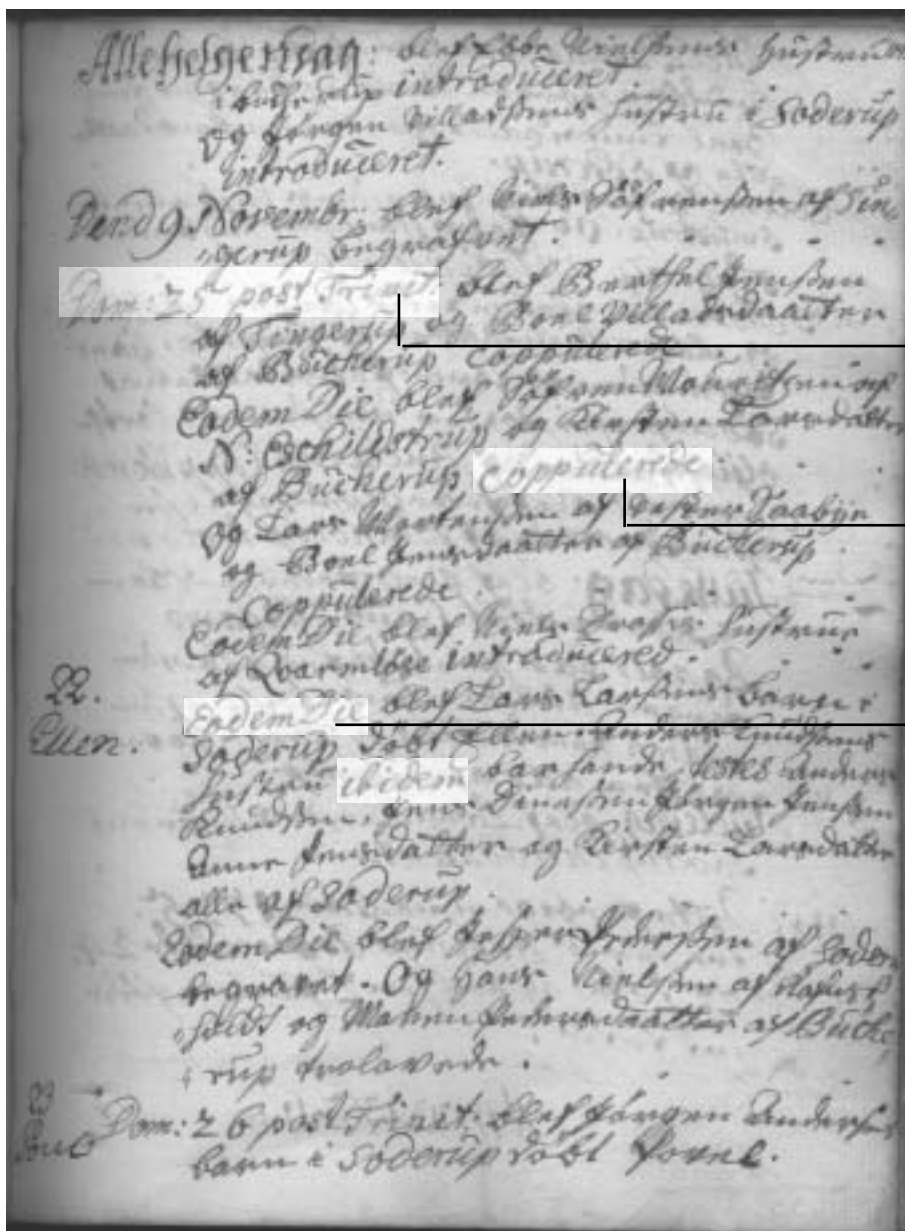 Allehelgensdag: blef Ebbe Nielsens Hustrue
i Bucherup introduceret.
og Jørgen Villadsens Hustru i Soderup
introduceret.
Dend 9. Novembr: blef Niels Søfrensen af Tin,
gerup begrafvet.
Dom: 25 post Trinit: blef Berthel Jensen
af Tingerup og Boel Villadsdaatter
af Bucherup Coppulerede.
Eodem Die blef Søfren Mouritsen af
N: Eschildstrup og Kirsten Larsdatter
af Bucherup Coppulerede.
og Lars Mortensen af Vester Saabye
og Boel Jensdaatter af Bucherup
Coppulerede.
Eodem Die blef Niels Hustrue
af Qvarmløse introducered.
22. Eodem Die blef Lars Larsens barn i
Ellen. Soderup døbt Ellen. Anders Knudsens
Hustru ibidem bar hende, testes Anders
Knudsen, Jens Dinesen Jørgen Jensen
Anne Jensdatter og Kirsten Larsdatter
alle af Soderup.
Eodem Die blef Jesper Pedersen af Soderu
begravet. Og Hans Nielsen af
og Maren Pedersdaatter af Buche,
rup trolovede.
23 Dom: 26 post Trinit: blef Jørgen Anders
barn i Soderup døbt Povel.